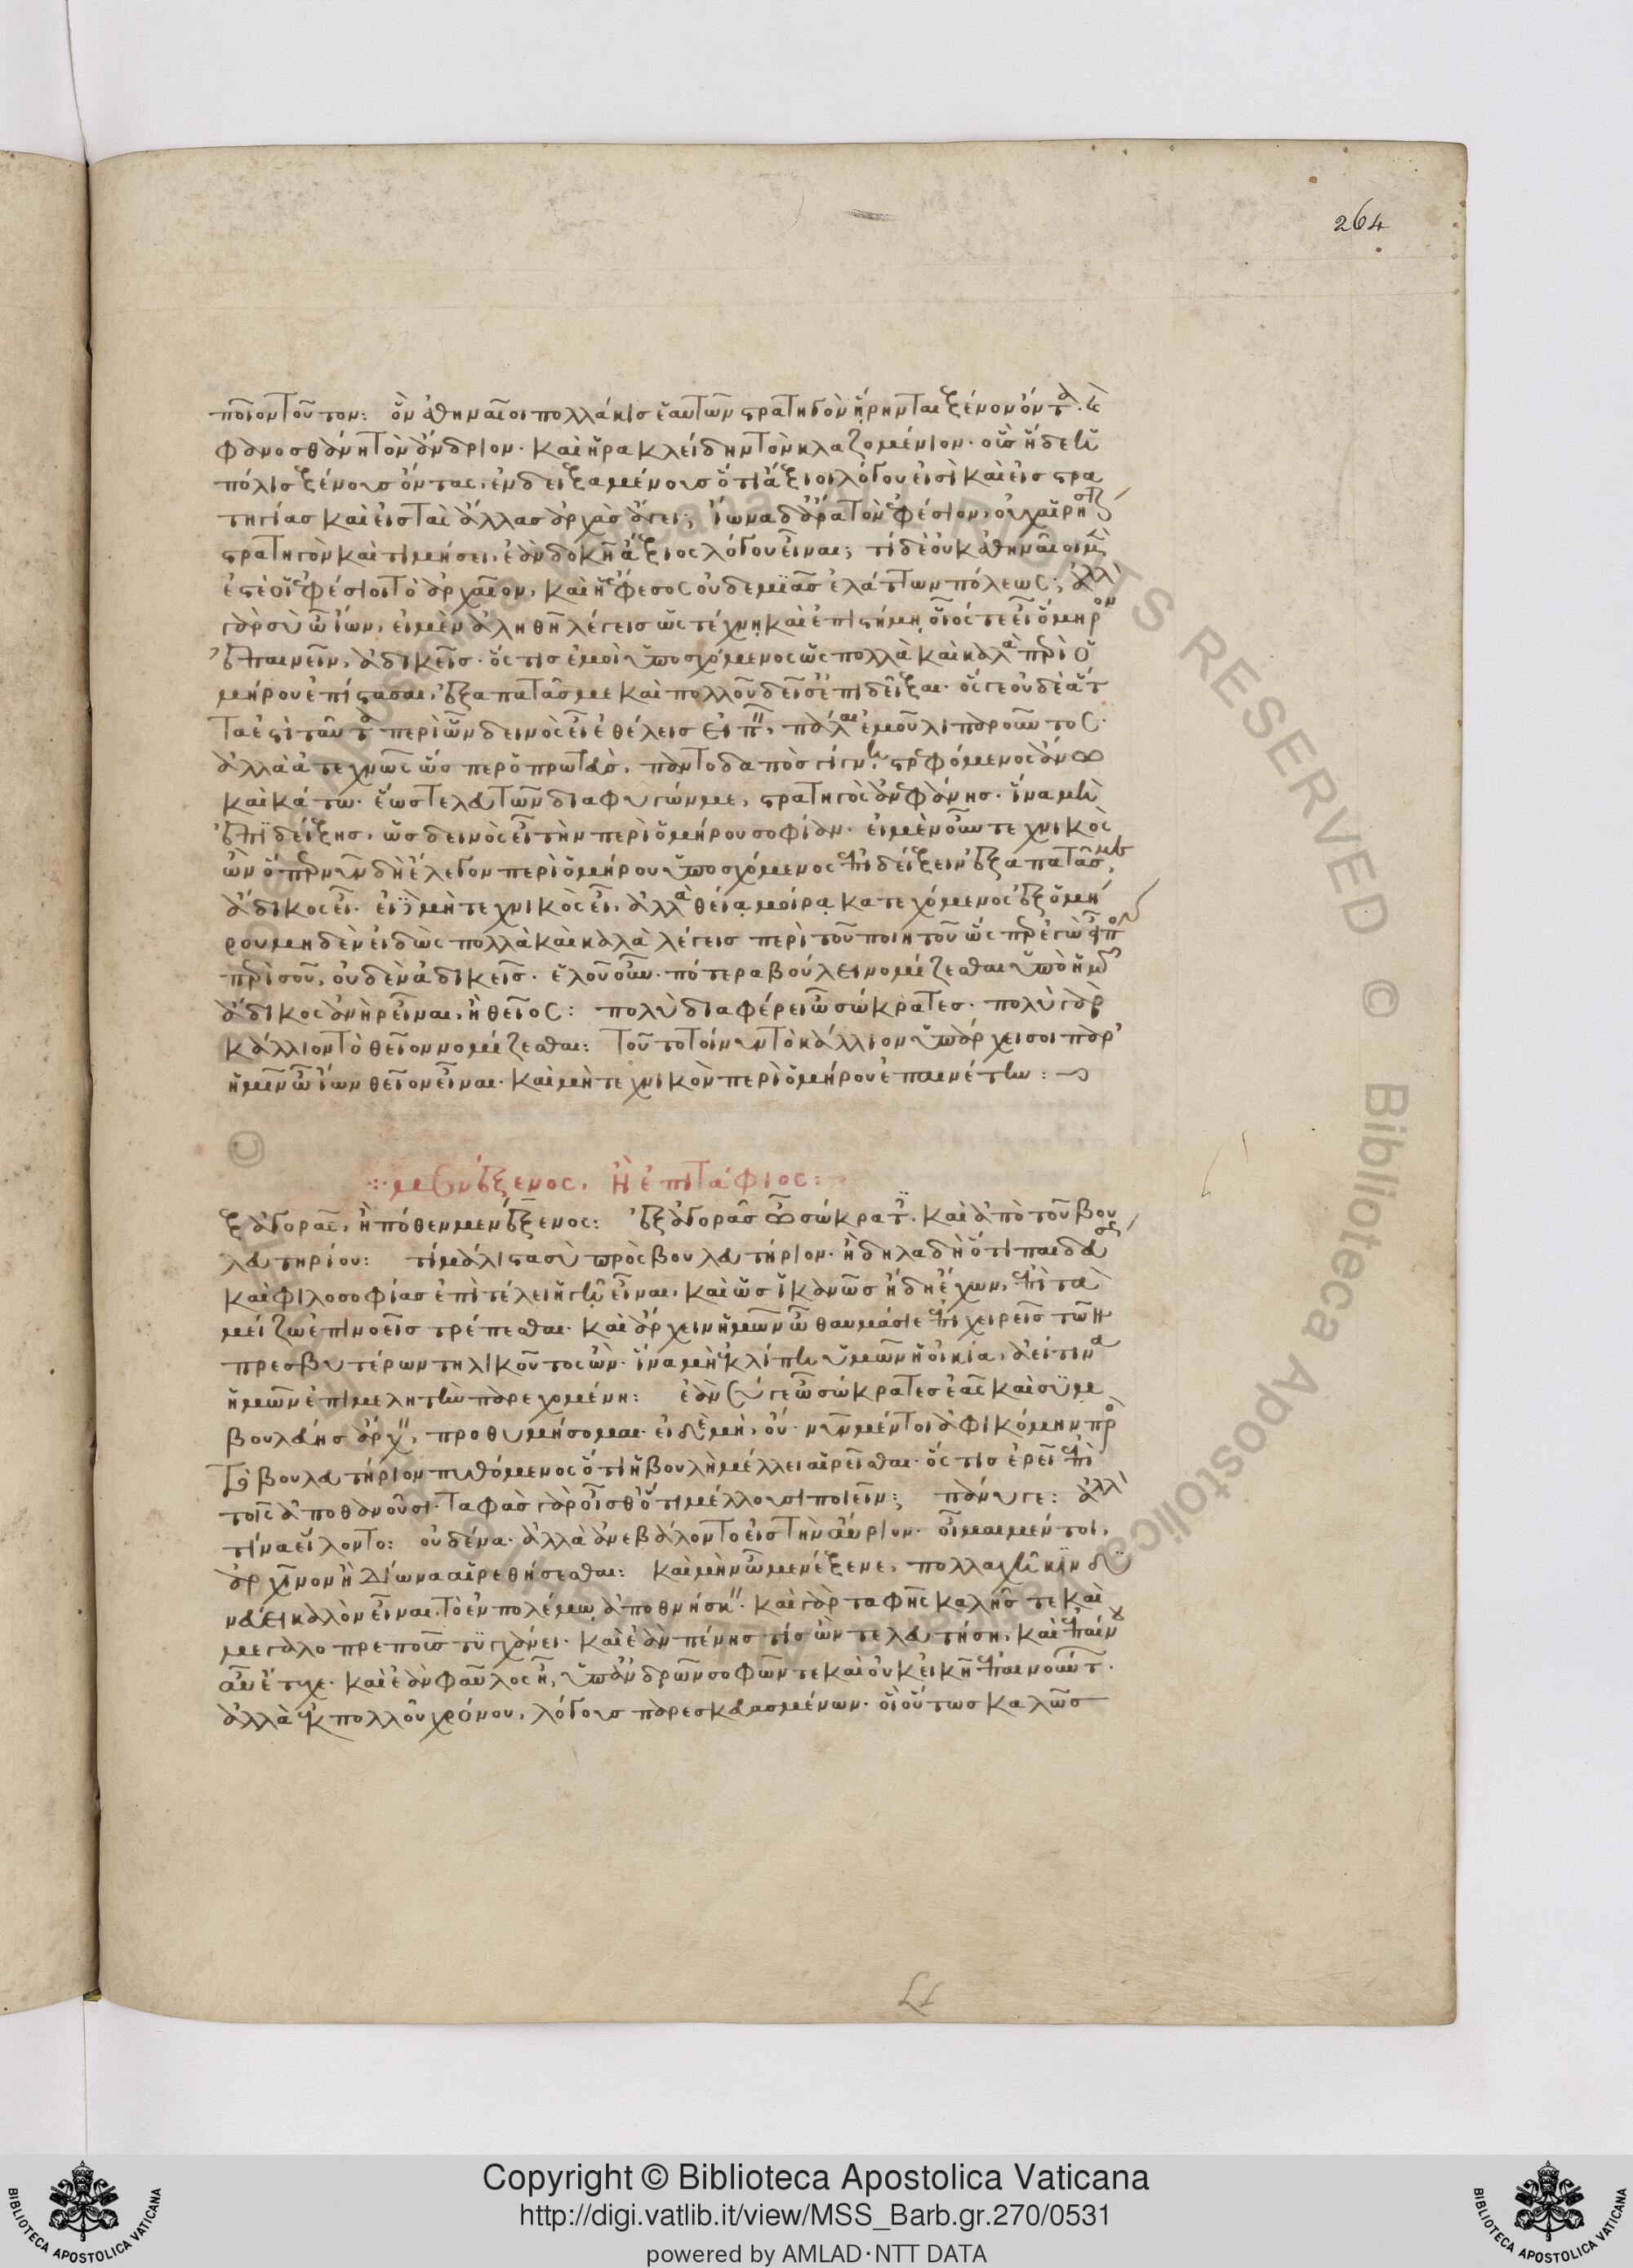 264
ποῖον τοῦτον: ὃν ἀθηναῖοι πολλάκις ἑαυτῶν στρατηγὸν ᾕρηνται ξένον ὄντα. καὶ
φανοσθένη τὸν ἄνδριον. καὶ ἡρακλείδην τὸν κλαζομένιον. οὓς ἥδε ἡ
πόλις ξένους ὄντας, ἐνδειξαμένους ὅτι ἄξιοι λόγου εἰσὶ καὶ εἰς στρα
τηγίας καὶ εἰς τὰς ἄλλας ἀρχὰς ἄγει; ἴωνα δ' ἄρα τὸν ἐφέσιον, οὐχ αἱρήσεται
στρατηγὸν καὶ τιμήσει, ἐὰν δοκῇ ἄξιος λόγου εἶναι; τί δὲ οὐκ ἀθηναῖοι μέν
ἐστε οἱ ἐφέσιοι τὸ ἀρχαῖον, καὶ ἡ ἔφεσος οὐδεμιᾶς ἐλάττων πόλεως; ἀλλὰ
γὰρ σὺ ὦ ἴων, εἰ μὲν ἀληθῆ λέγεις ὡς τέχνῃ καὶ ἐπιστήμῃ οἷός τε εἶ ὅμηρον
ἐπαινεῖν, ἀδικεῖς. ὅστις ἐμοὶ ὑποσχόμενος ὡς πολλὰ καὶ καλὰ περὶ ὁ
μήρου ἐπίστασαι, ἐξαπατᾷς με καὶ πολλοῦ δεῖς ἐπιδεῖξαι. ὅς γε οὐδὲ ἅτ
τα ἐστὶ ταῦτα περὶ ὧν δεινὸς εἶ ἐθέλεις εἰπεῖν, πάλαι ἐμοῦ λιπαροῦντος.
ἀλλὰ ἀτεχνῶς ὥσπερ ὁ πρωτεὺς, παντοδαπὸς γίγνῃ στρεφόμενος ἄνω
καὶ κάτω. ἕως τελευτῶν διαφυγών με, στρατηγὸς ἀνεφάνης. ἵνα μὴ
ἐπιδείξῃς, ὡς δεινὸς εἶ τὴν περὶ ὁμήρου σοφίαν. εἰ μὲν οὖν τεχνικὸς
ὢν ὅπερ νῦν δὴ ἔλεγον περὶ ὁμήρου ὑποσχόμενος ἐπιδείξειν ἐξαπατᾷς με,
ἄδικος εἶ. εἰ δὲ μὴ τεχνικὸς εἶ, ἀλλὰ θείᾳ μοίρᾳ κατεχόμενος ἐξ ὁμή
ρου μηδὲν εἰδὼς πολλὰ καὶ καλὰ λέγεις περὶ τοῦ ποιητοῦ ὥσπερ ἐγὼ εἶπον
περὶ σοῦ, οὐδὲν ἀδικεῖς. ἑλοῦ οὖν. πότερα βούλει νομίζεσθαι ὑπὸ ἡμῶν
ἄδικος ἀνὴρ εἶναι, ἢ θεῖος: πολὺ διαφέρει ὦ σώκρατες. πολὺ γὰρ
κάλλιον τὸ θεῖον νομίζεσθαι: τοῦτο τοίνυν τὸ κάλλιον ὑπάρχει σοι παρ'
ἡμῖν ὦ ἴων θεῖον εἶναι. καὶ μὴ τεχνικὸν περὶ ὁμήρου ἐπαινέτην:
μενέξενος, ἢ ἐπιτάφιος:
ξ ἀγορᾶς, ἢ πόθεν μενέξενος: ἐξ ἀγορᾶς ὦ σώκρατες. καὶ ἀπὸ τοῦ βου
λευτηρίου: τί μάλιστα σὺ πρὸς βουλευτήριον. ἢ δῆλα δὴ ὅτι παιδεύσεως
καὶ φιλοσοφίας ἐπὶ τέλει ἡγῇ εἶναι, καὶ ὡς ἱκανῶς ἤδη ἔχων, ἐπὶ τὰ
μείζω ἐπινοεῖς τρέπεσθαι. καὶ ἄρχειν ἡμῶν ὦ θαυμάσιε ἐπιχειρεῖς τῶν
πρεσβυτέρων τηλικοῦτος ὤν. ἵνα μὴ ἐκλίπῃ ὑμῶν ἡ οἰκία, ἀεί τινα
ἡμῶν ἐπιμελητὴν παρεχομένη: ἐὰν σύ γε ὦ σώκρατες ἐᾷς καὶ συμ
βουλεύῃς ἄρχειν, προθυμήσομαι. εἰ δὲ μὴ, οὔ. νῦν μέντοι ἀφικόμην πρὸς
τὸ βουλευτήριον πυθόμενος ὅτι ἡ βουλὴ μέλλει αἱρεῖσθαι. ὅστις ἐρεῖ ἐπὶ
τοῖς ἀποθανοῦσι. ταφὰς γὰρ οἶσθ' ὅτι μέλλουσι ποιεῖν; πάνυ γε: ἀλλὰ
τίνα εἵλοντο: οὐδένα. ἀλλὰ ἀνεβάλοντο εἰς τὴν αὔριον. οἶμαι μέντοι,
ἀρχῖνον ἢ Δίωνα αἱρεθήσεσθαι: καὶ μὴν ὦ μενέξενε, πολλαχῇ κινδυ
νεύει καλὸν εἶναι, τὸ ἐν πολέμῳ ἀποθνήσκειν. καὶ γὰρ ταφῆς καλῆς τε καὶ
μεγαλοπρεποῦς τυγχάνει. καὶ ἐὰν πένης τίς ὢν τελευτήσῃ, καὶ ἐπαίνου
αὖ ἔτυχε. καὶ ἐὰν φαῦλος ᾖ, ὑπ' ἀνδρῶν σοφῶν τε καὶ οὐκ εἰκῇ ἐπαινούντων.
ἀλλὰ ἐκ πολλοῦ χρόνου, λόγους παρεσκευασμένων. οἳ οὕτως καλῶς
Copyright © Biblioteca Apostolica Vaticana
http://digi.vatlib.it/view/MSS_Barb.gr.270/0531
powered by AMLAD·NTT DATA